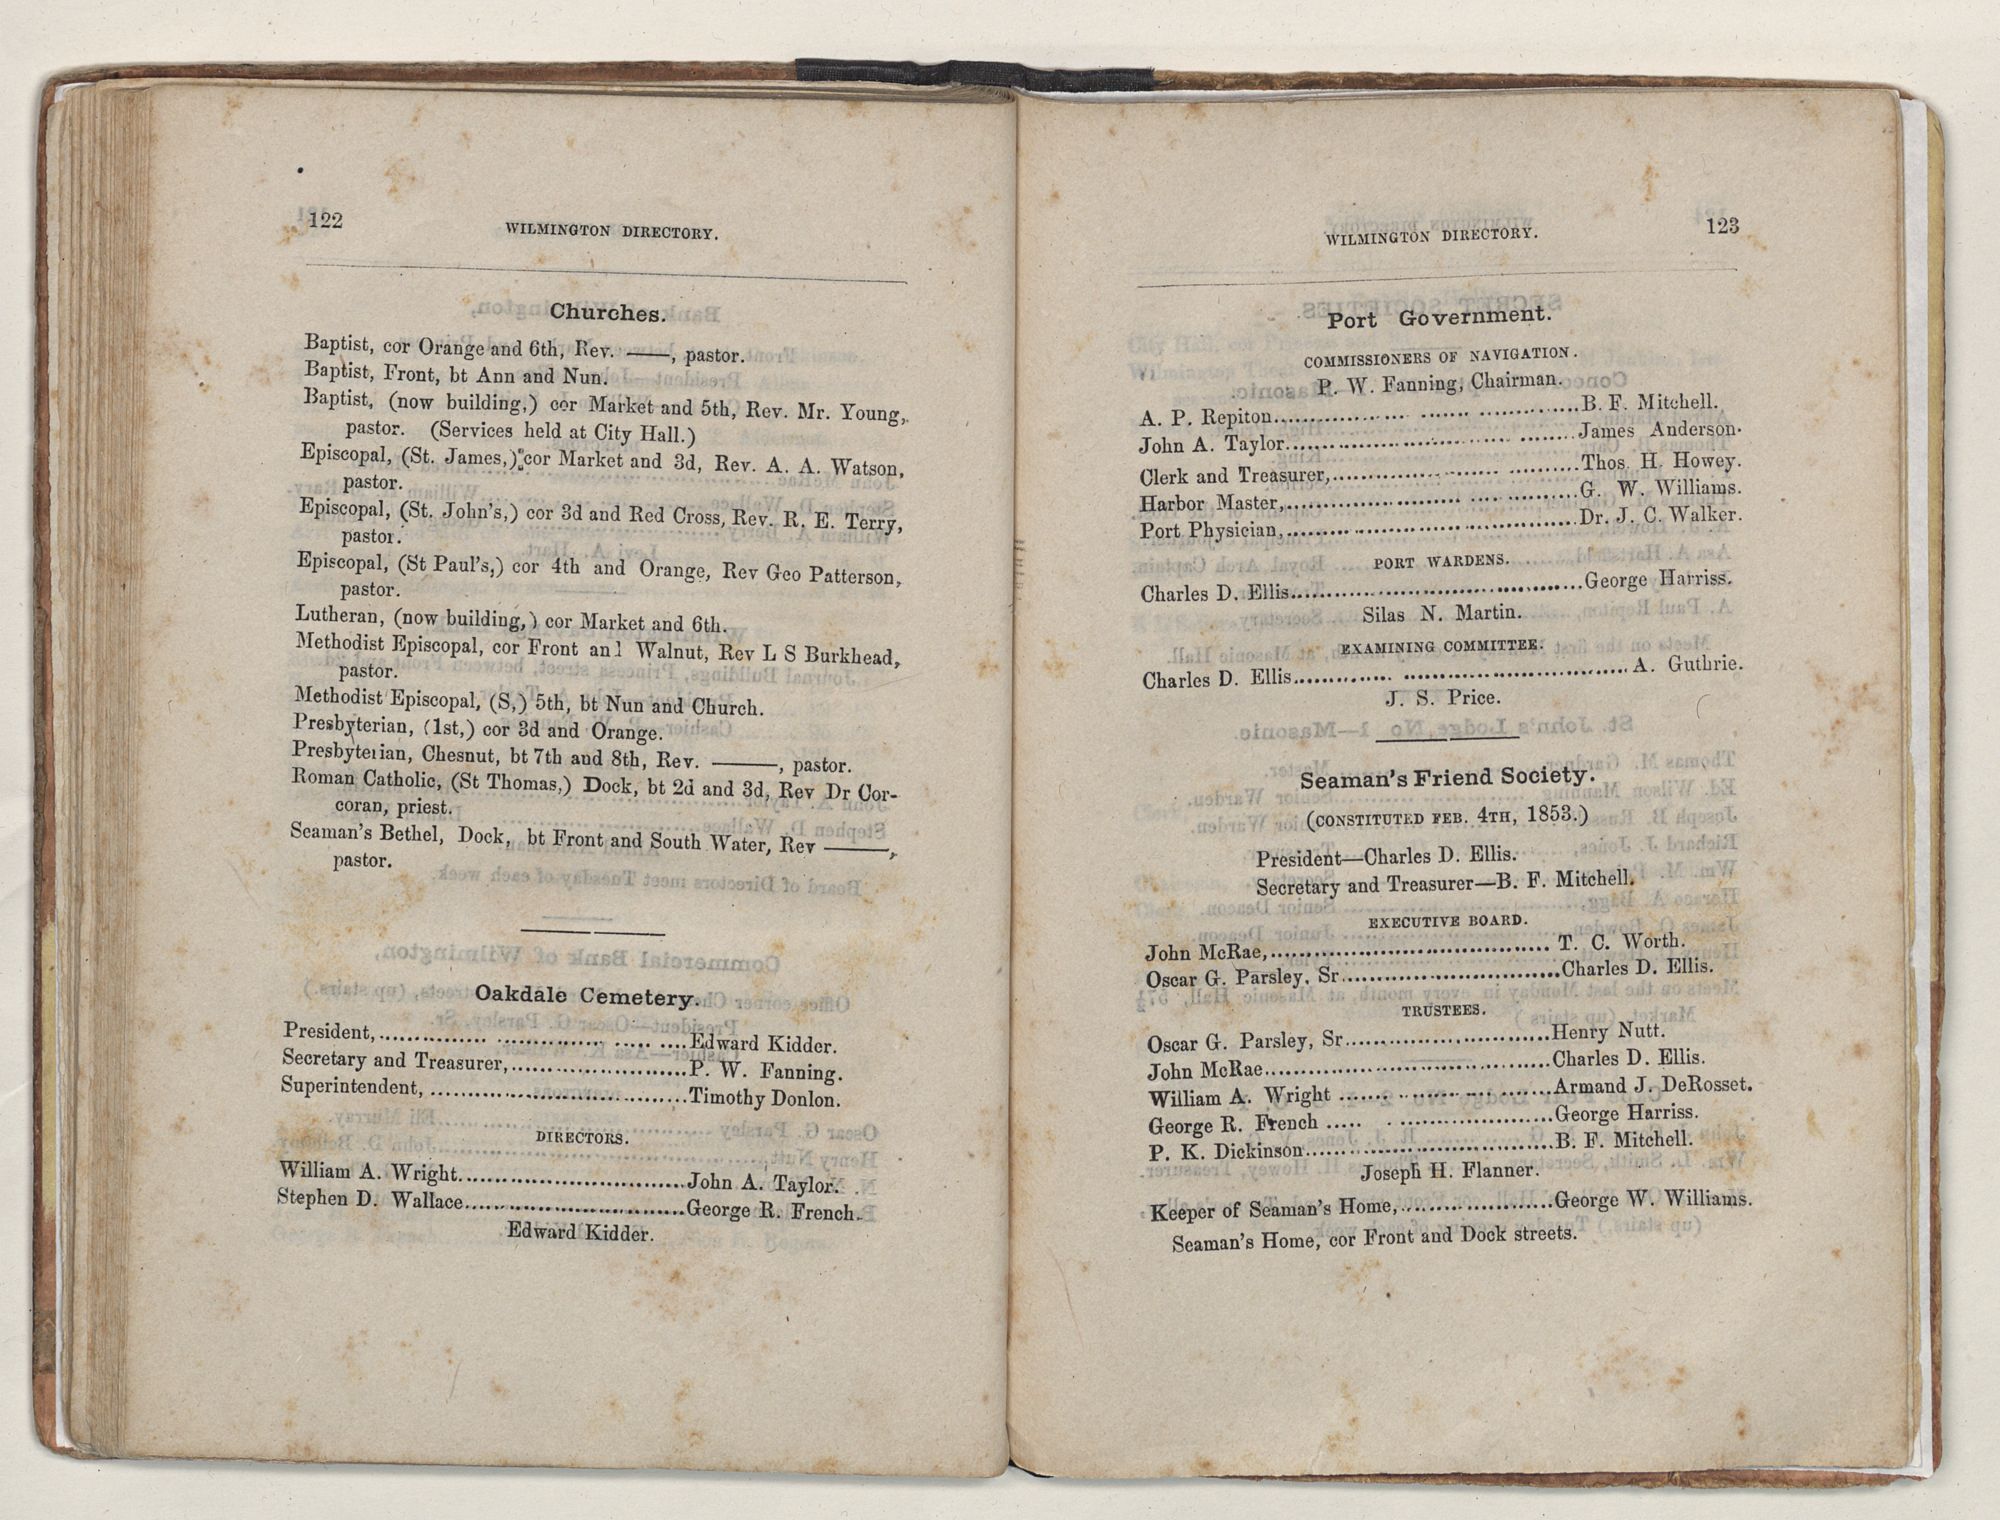 122
WILMINGTON DIRECTORY.
Churches.
Baptist, cor Orange and 6th, Rev. ——, pastor.
Baptist, Front, bt Ann and Nun.
Baptist, (now building,) cor Market and 5th, Rev. Mr. Young,
pastor. (Services held at City Hall.)
Episcopal, (St. James,) cor Market and 3d, Rev. A. A. Watson,
pastor.
Episcopal, (St. John's,) cor 3d and Red Cross, Rev. R. E. Terry,
pastor.
Episcopal, (St Paul's,) cor 4th and Orange, Rev Geo Patterson,
pastor.
Lutheran, (now building,) cor Market and 6th.
Methodist Episcopal, cor Front and Walnut, Rev L S Burkhead,
pastor.
Methodist Episcopal, (S,) 5th, bt Nun and Church.
Presbyterian, (1st,) cor 3d and Orange.
Presbyterian, Chesnut, bt 7th and 8th, Rev. ———, pastor.
Roman Catholic, (St Thomas,) Dock, bt 2d and 3d, Rev Dr Cor-
coran, priest.
Seaman's Bethel, Dock, bt Front and South Water, Rev ———,
pastor.
Oakdale Cemetery.
President,..............................Edward Kidder.
Secretary and Treasurer,........................P. W. Fanning.
Superintendent, ...................................Timothy Donlon.
DIRECTORS.
William A. Wright...............................John A. Taylor.
Stephen D. Wallace..............................George R. French.
Edward Kidder.
WILMINGTON DIRECTORY.
123
Port Government.
COMMISSIONERS OF NAVIGATION.
P. W. Fanning, Chairman.
A. P. Repiton..............................B. F. Mitchell.
John A. Taylor..............................James Anderson.
Clerk and Treasurer,..............................Thos. H. Howey.
Harbor Master,..............................G. W. Williams.
Port Physician,..............................Dr. J. C. Walker.
PORT WARDENS.
Charles D. Ellis..............................George Harriss.
Silas N. Martin.
EXAMINING COMMITTEE.
Charles D. Ellis..............................A. Guthrie.
J. S. Price.
Seaman's Friend Society.
(CONSTITUTED FEB. 4TH, 1853.)
President—Charles D. Ellis.
Secretary and Treasurer—B. F. Mitchell.
EXECUTIVE BOARD.
John McRae,..............................T. C. Worth.
Oscar G. Parsley, Sr..............................Charles D. Ellis.
TRUSTEES.
Oscar G. Parsley, Sr..............................Henry Nutt.
John McRae..............................Charles D. Ellis.
William A. Wright ..............................Armand J. DeRosset.
George R. French ..............................George Harriss.
P. K. Dickinson..............................B. F. Mitchell.
Joseph H. Flanner.
Keeper of Seaman's Home,......................George W. Williams.
Seaman's Home, cor Front and Dock streets.